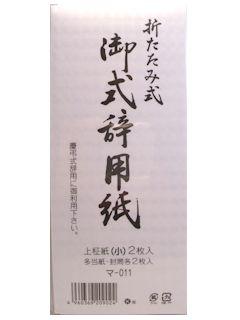 折たたみ式
御式辞用紙
慶弔式辞用に御利用下さい。
上柾紙(小)2枚入
多当紙・封筒各2枚入
マ-011
4960368209024